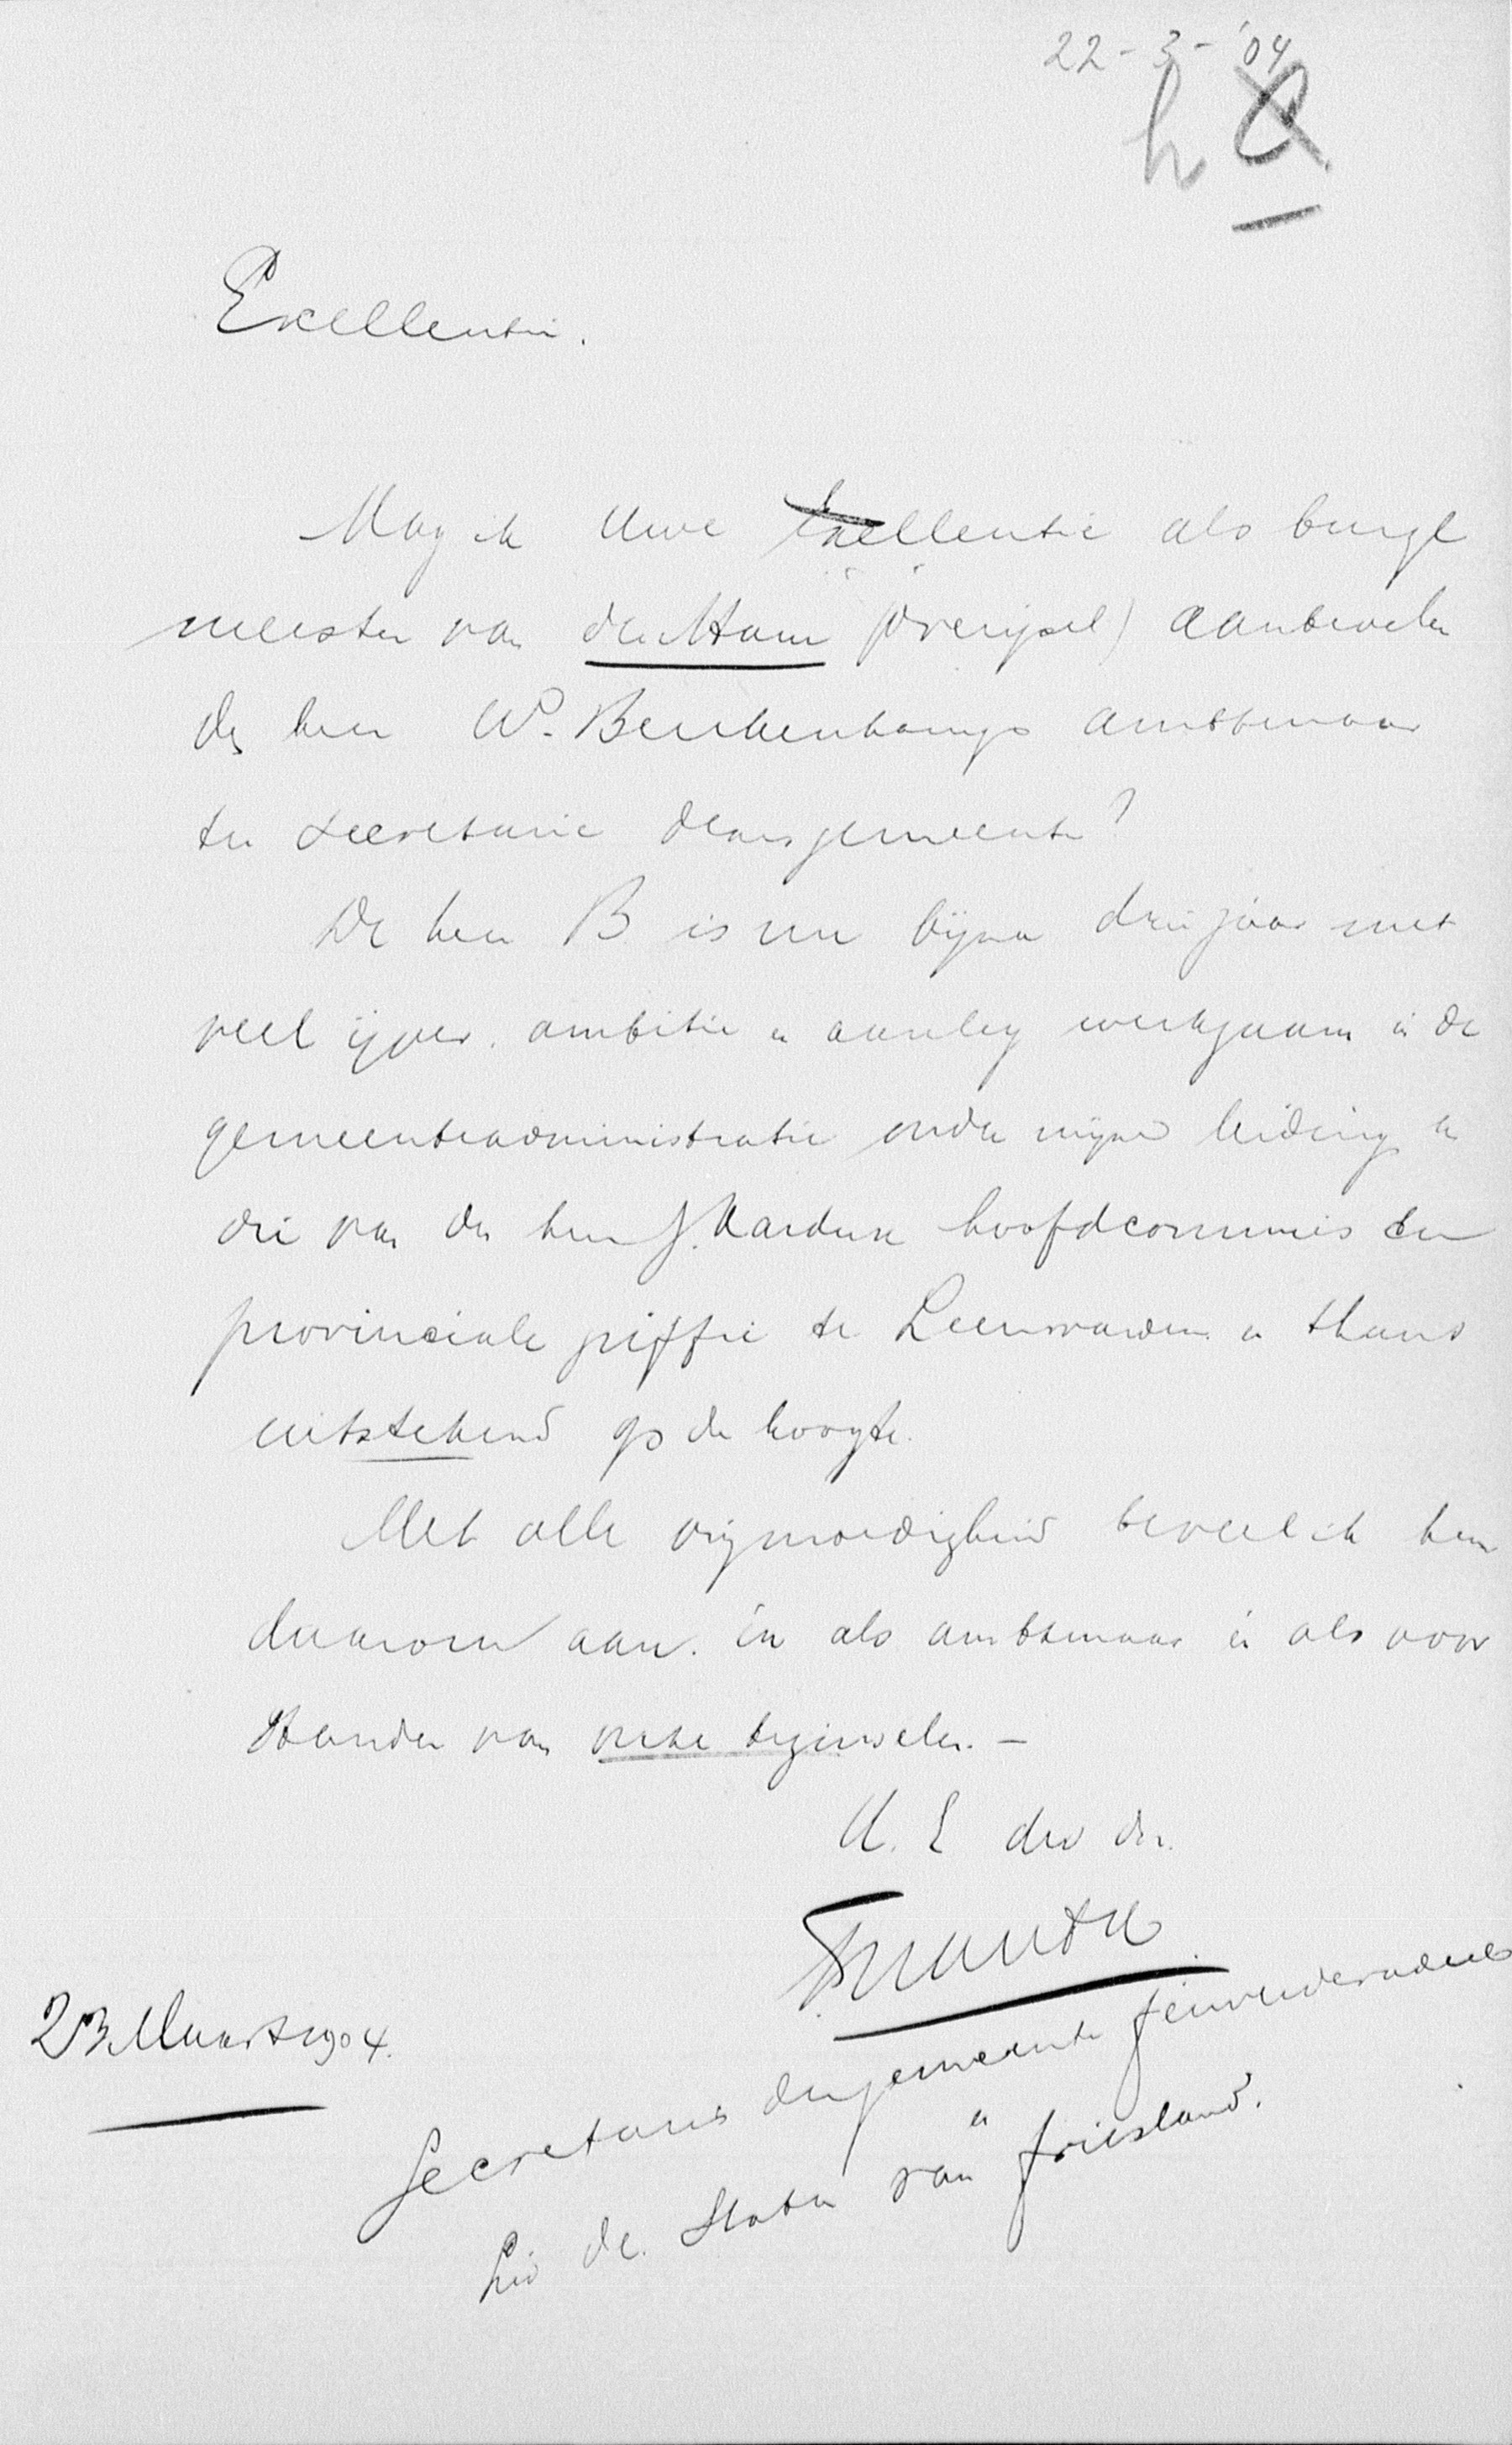 22-3-'04
h
Excellentie.
Mag ik Uwe Excellentie als burge
meester van den Ham (Overijsel) aanbevelen
den heer W. Beukenkamp ambtenaar
ter secretarie dezer gemeente?
De heer B is nu bijna drie jaar met
veel ijver, ambitie en aanleg werkzaam in de
gemeenteadministratie onder mijne leiding en
die van den heer J. hoofdcommies der
provinciale griffie te Leeuwarden en thans
uitstekend op de hoogte.
Met alle vrijmoedigheid beveel ik hem
daarom aan. èn als ambtenaar èn als voor
stander van onze beginselen. —
U. E dw dr.
23 Maart 1904.
Secretaris der gemeente Leeuwarderadeel
en
Lid de. Staten van Friesland.